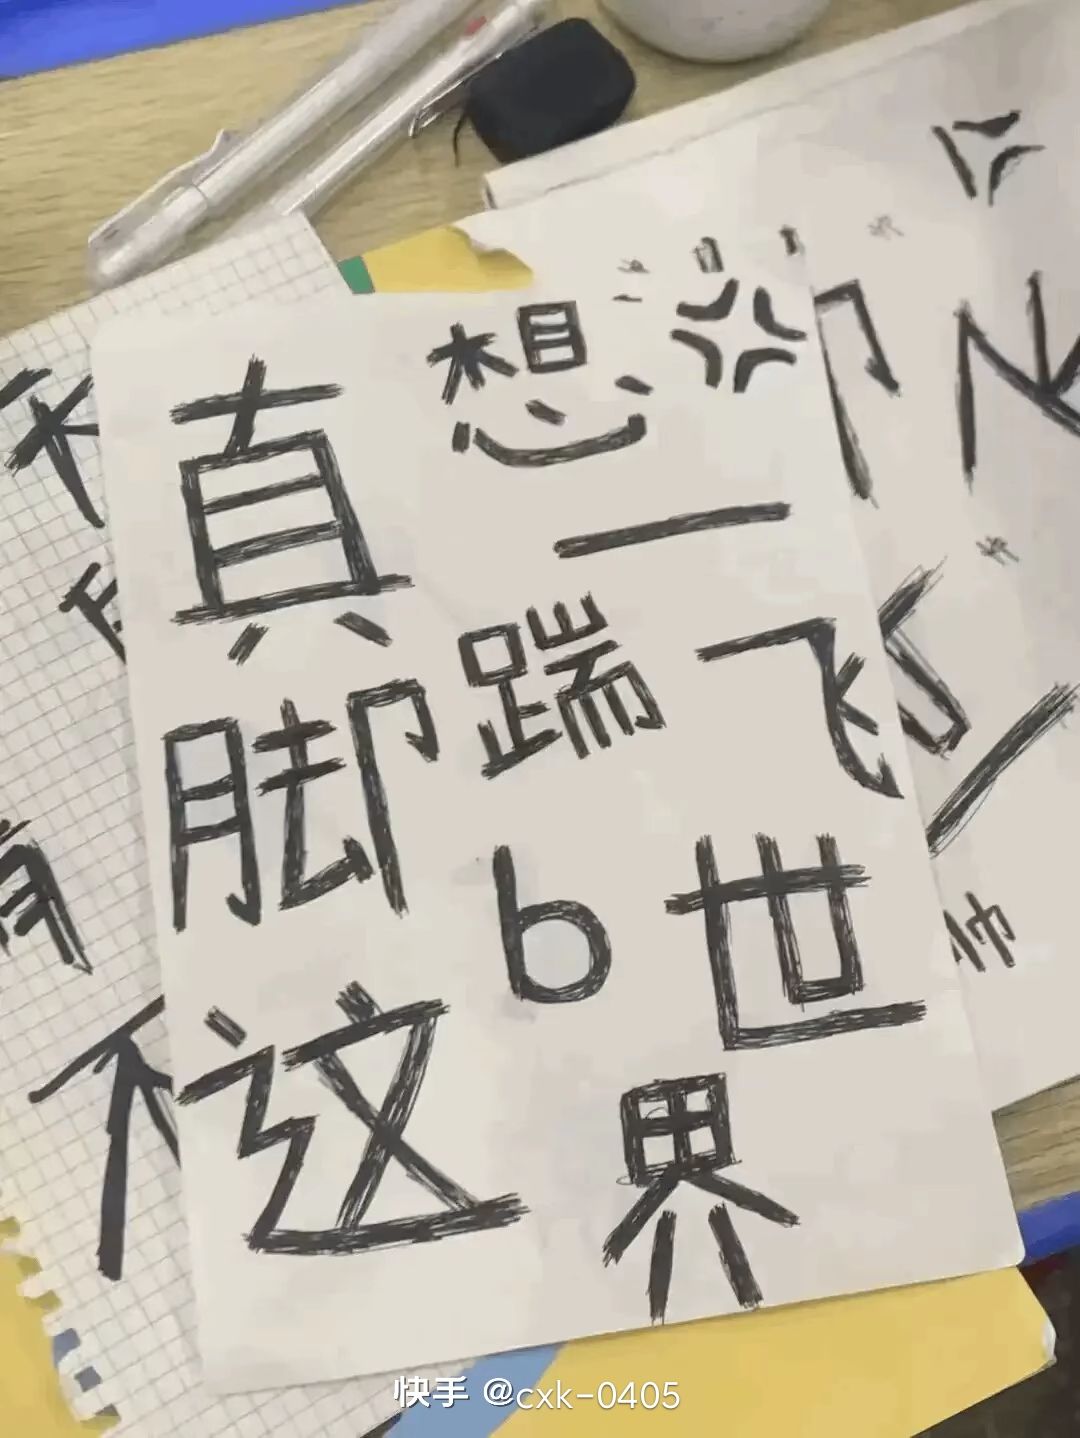 真想一
脚踹飞
这b世界
帅
快手 @cxk-0405